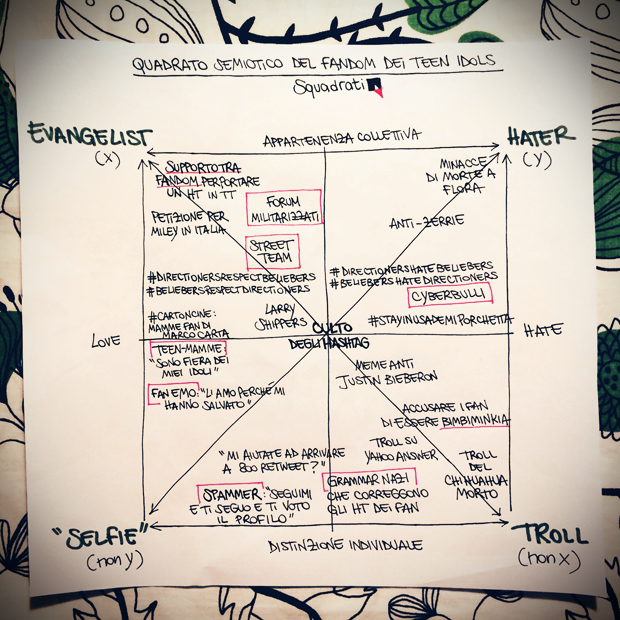 QUADRATO SEMIOTICO DEL FANDOM DEI TEEN IDOLS
Squadrati
EVANGELIST
(x)
APPARTENENZA COLLETTIVA
HATER
(y)
SUPPORTO TRA
FANDOM PER PORTARE
UN HT IN TT
FORUM
MILITARIZZATI
MINACCE
DI MORTE A
FLORA
PETIZIONE PER
MILEY IN ITALIA
ANTI-ZERRIE
STREET
TEAM
#DIRECTIONERSRESPECTBELIEBERS
#BELIEBERSRESPECTDIRECTIONERS
#DIRECTIONERSHATEBELIEBERS
#BELIEBERSHATEDIRECTIONERS
CYBERBULLI
#CARTONCINE:
MAMME FAN DI
MARCO CARTA
LARRY
SHIPPERS
#STAYINUSADEMIPORCHETTA
LOVE
CULTO
DEGLI HASHTAG
HATE
TEEN-MAMME:
"SONO FIERA DEI
MIEI IDOLI"
MEME ANTI
JUSTIN BIEBERON
FAN EMO: "LI AMO PERCHÉ MI
HANNO SALVATO"
ACCUSARE I FAN
DI ESSERE BIMBIMINKIA
"MI AIUTATE AD ARRIVARE
A 800 RETWEET?"
TROLL SU
YAHOO ANSWER
TROLL
DEL
CHIHUAHUA
MORTO
SPAMMER: "SEGUIMI
E TI SEGUO E TI VOTO
IL PROFILO"
GRAMMAR NAZI
CHE CORREGGONO
GLI HT DEI FAN
"SELFIE"
(non y)
DISTINZIONE INDIVIDUALE
TROLL
(non x)